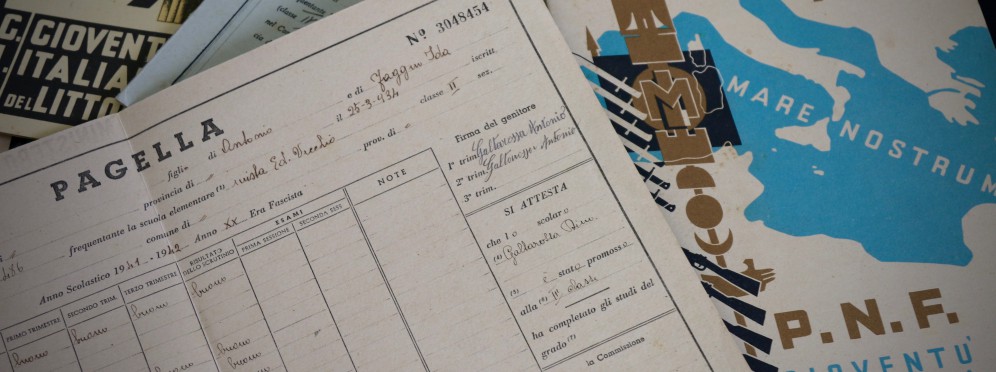 G.
GIOVENT
I. ITALIA
DEL LITTO
Nº 3948454
PAGELLA
figli di Antonio e di Ida
il 25-3-934 iscritt
provincia di
classe II sez.
frequentante la scuola elementare (1) mista Ed. Vecchio prov. di
comune di
Anno Scolastico 1941 - 1942 Anno XX Era Fascista
PRIMO TRIMESTRE
SECONDO TRIM.
TERZO TRIMESTRE
RISULTATO DELLO SCRUTINIO
ESAMI
PRIMA SESSIONE
SECONDA SESS
NOTE
buono
buono
buono
buono
buono
buono
buono
buono
Firma del genitore
1º trim. Gallarossa Antonio
2º trim. Antonio
3º trim.
SI ATTESTA
che l o scolaro
(1) Gallarossa Dino
(2) è stato promosso
alla (3)
ha completato gli studi del
grado (1)
la Commissione
MARE NOSTRUM
M
P.N.F.
GIOVENTU'